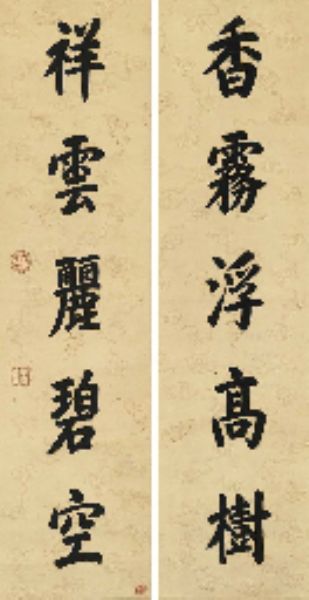 香霧浮髙樹
祥雲麗碧空